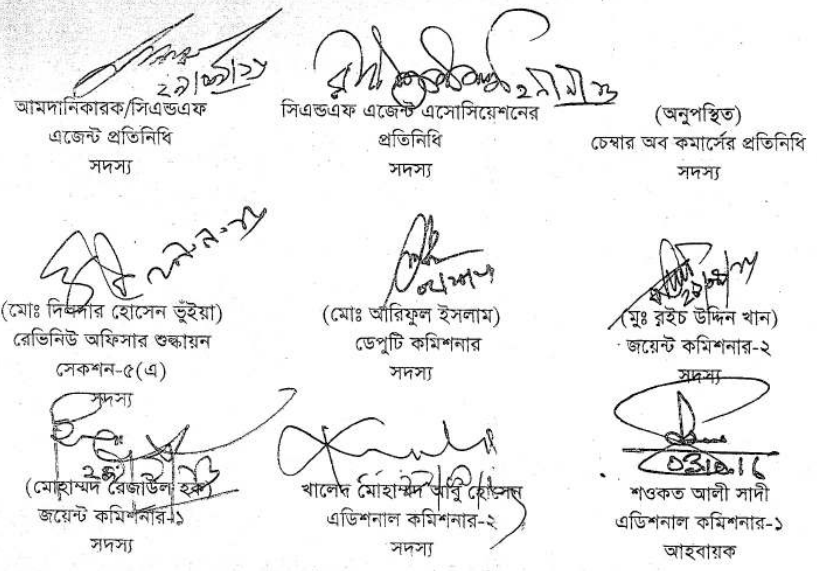 আমদানিকারক/সিএন্ডএফ
এজেন্ট প্রতিনিধি
সদস্য
সিএন্ডএফ এজেন্ট এসোসিয়েশনের
প্রতিনিধি
সদস্য
(অনুপস্থিত)
চেম্বার অব কমার্সের প্রতিনিধি
সদস্য
(মোঃ দিলদার হোসেন ভূঁইয়া)
রেভিনিউ অফিসার শুল্কায়ন
সেকশন-৫(এ)
সদস্য
(মোঃ আরিফুল ইসলাম)
ডেপুটি কমিশনার
সদস্য
(মুঃ রইচ উদ্দিন খান)
জয়েন্ট কমিশনার-২
সদস্য
(মোহাম্মদ রেজাউল হক)
জয়েন্ট কমিশনার-১
সদস্য
খালেদ মোহাম্মদ আবু হোসেন
এডিশনাল কমিশনার-২
সদস্য
শওকত আলী সাদী
এডিশনাল কমিশনার-১
আহবায়ক